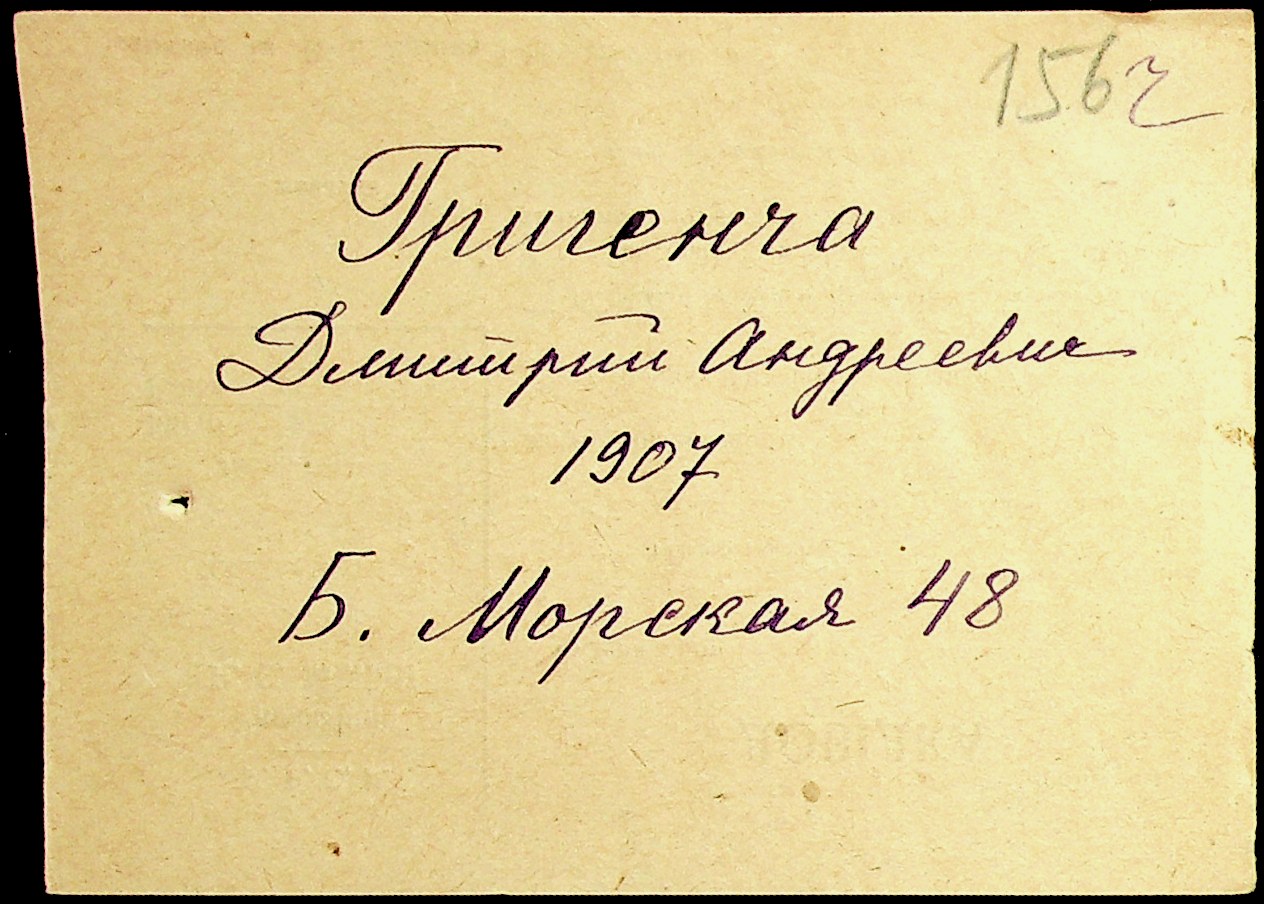 156 г
Григенча
Дмитрий Андреевич
1907
Б. Морская 48